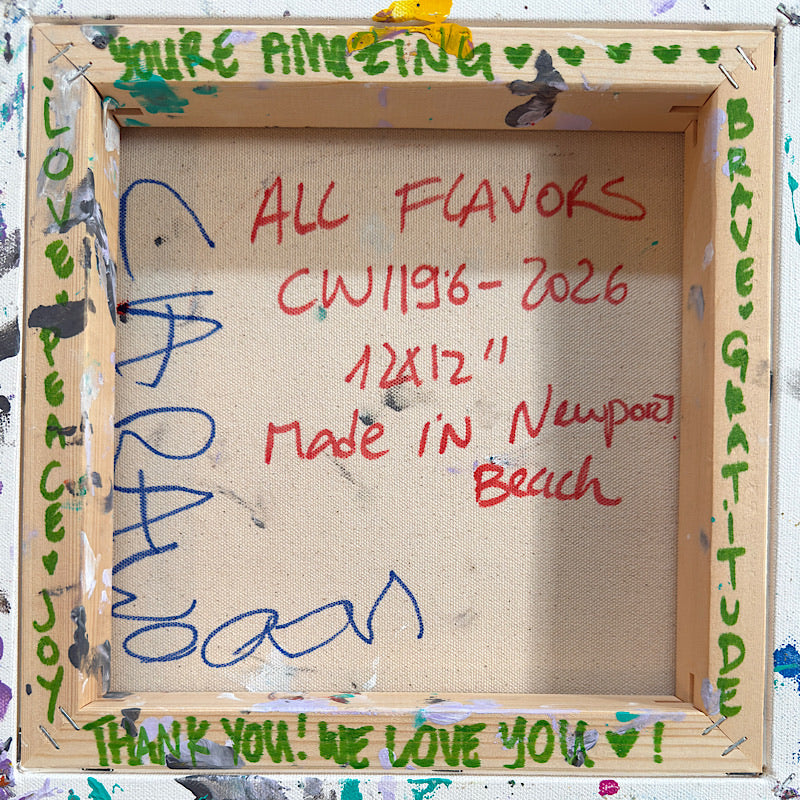 YOU'RE AMAZING ♥ ♥ ♥ ♥ ♥
LOVE ♥ PEACE ♥ JOY
BRAVE ♥ GRATITUDE
ALL FLAVORS
CW1196-2026
12X12"
Made in Newport
Beach
THANK YOU! WE LOVE YOU ♥!